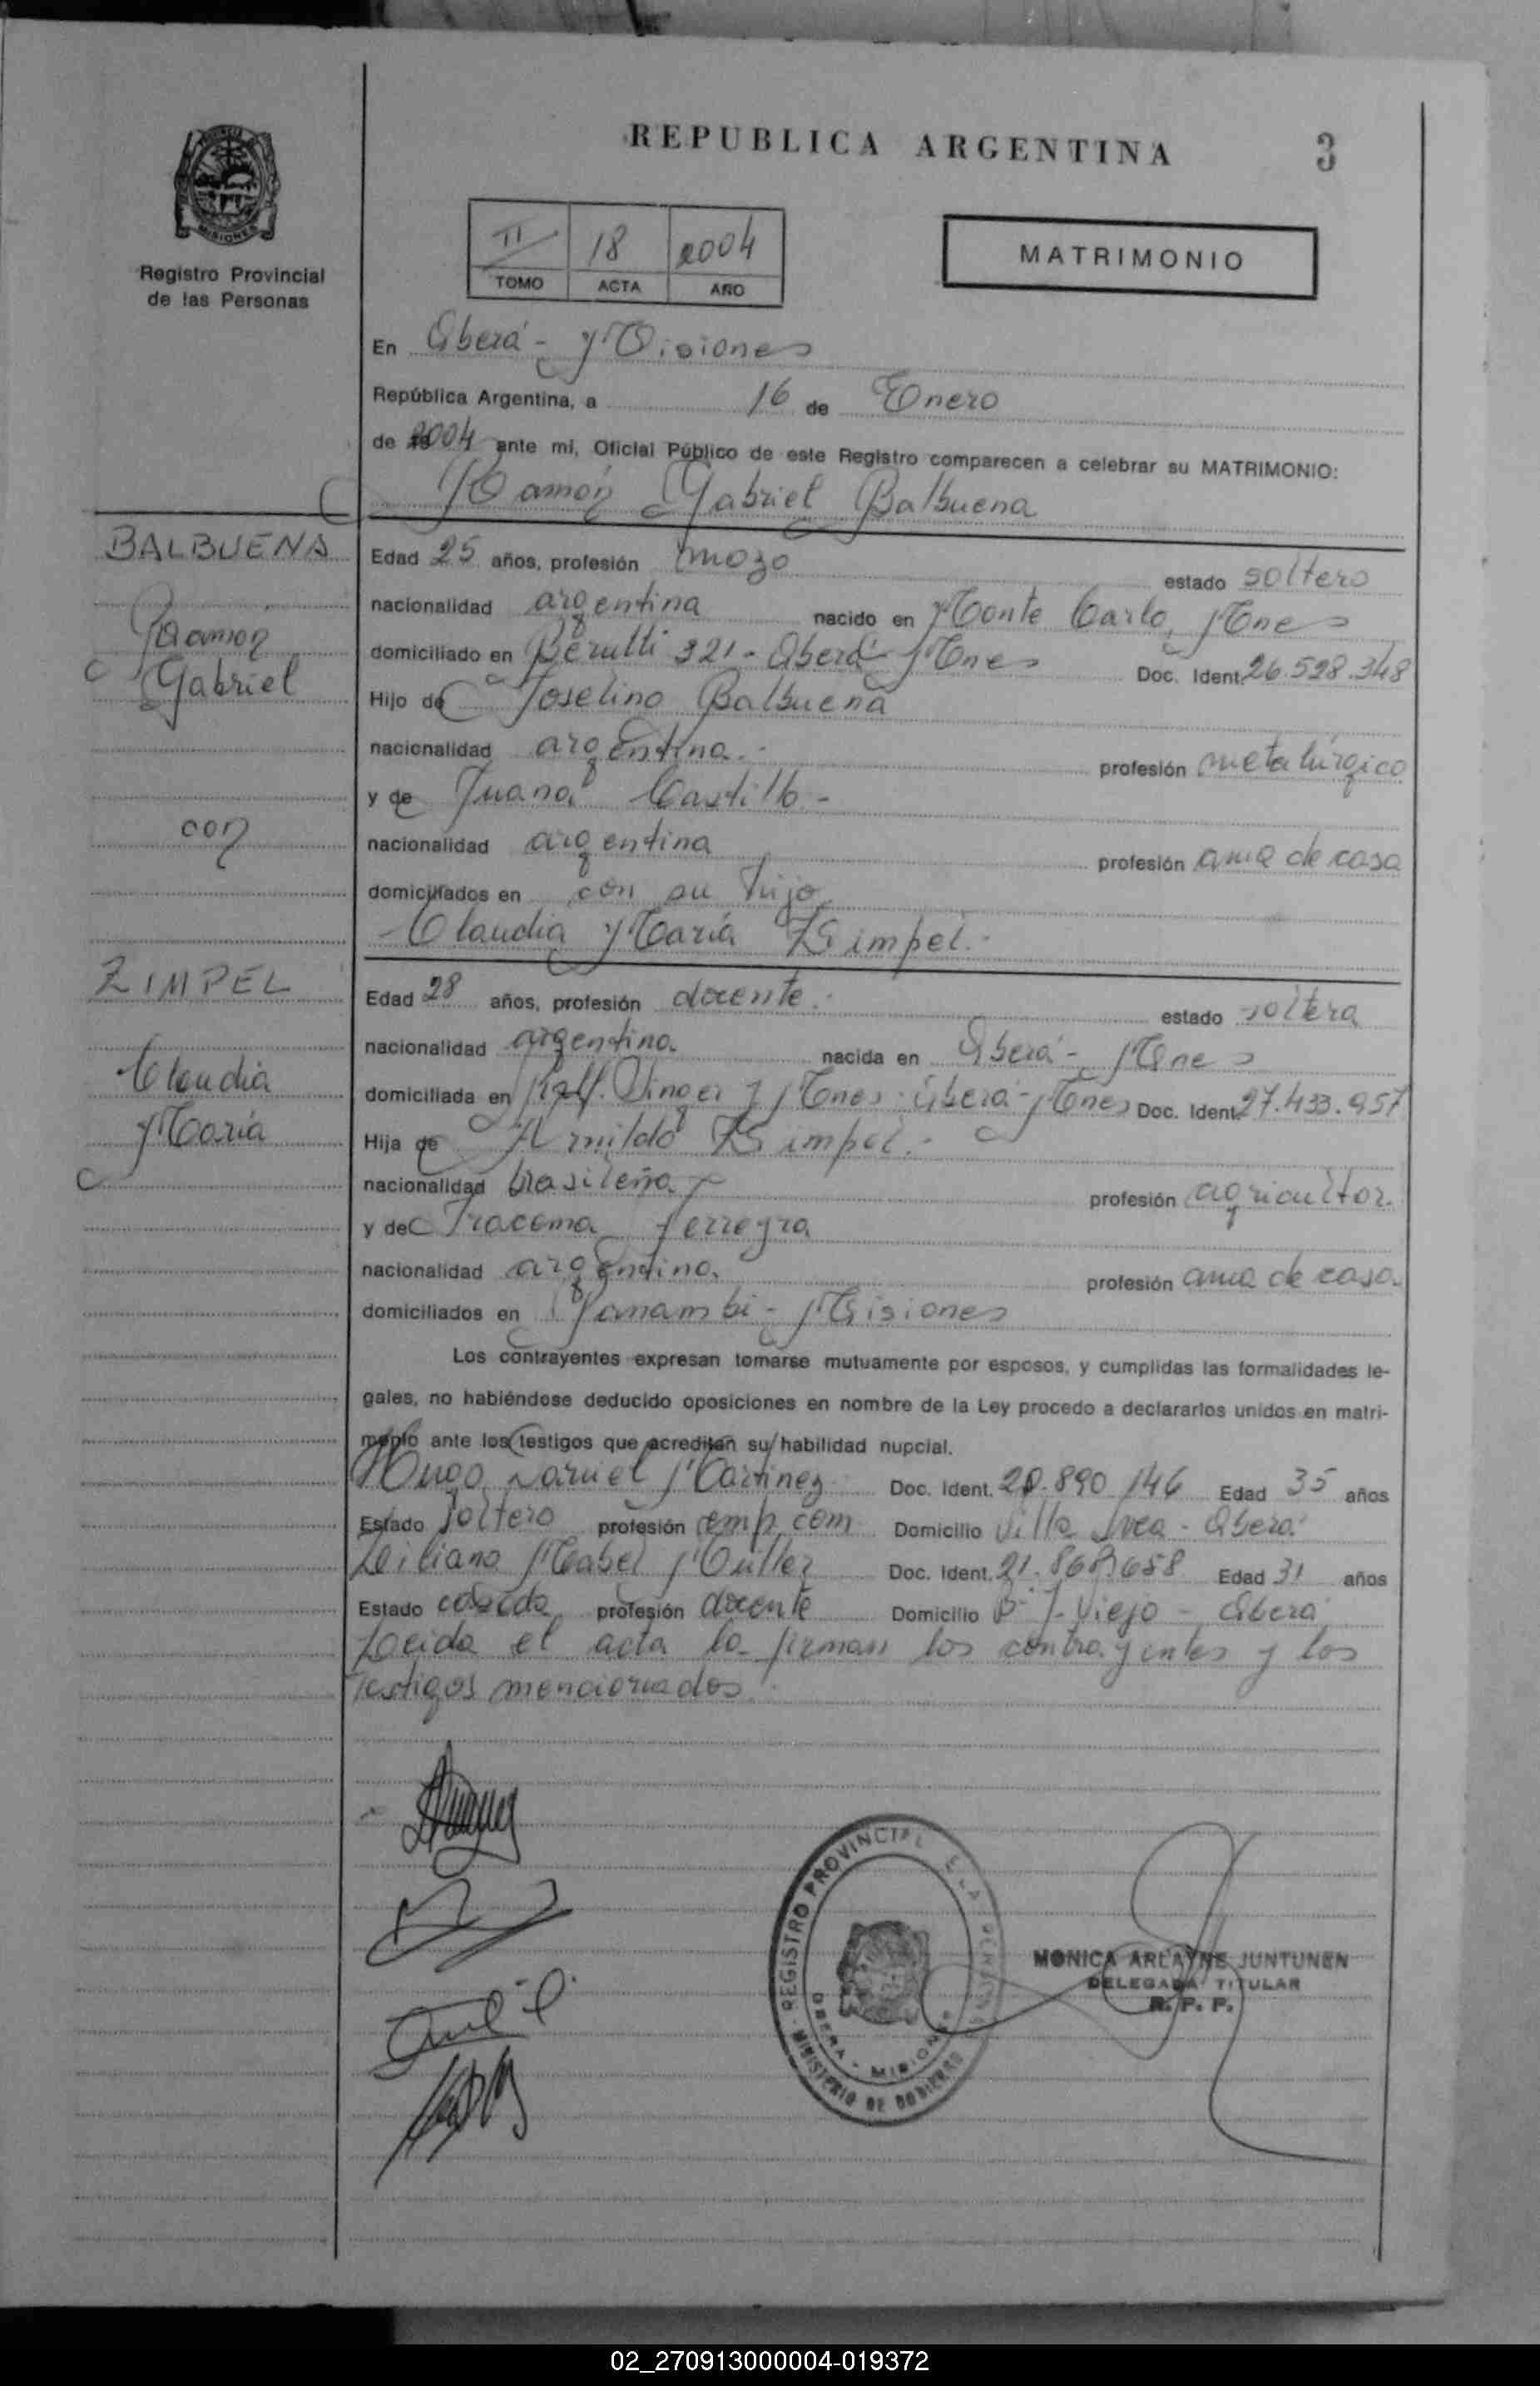 REPUBLICA ARGENTINA
3
MISIONES
Registro Provincial
de las Personas
II 18 2004
TOMO ACTA AÑO
MATRIMONIO
En Oberá - Misiones
República Argentina, a 16 de Enero
de 2004 ante mi, Oficial Público de este Registro comparecen a celebrar su MATRIMONIO:
Ramón Gabriel Balbuena
BALBUENA
Ramón
Gabriel
con
ZIMPEL
Claudia
María
Edad 25 años, profesión mozo estado soltero
nacionalidad argentina nacido en Monte Carlo, Mnes
domiciliado en Berutti 321 - Oberá - Mnes Doc. Ident. 26.528.348
Hijo de Joselino Balbuena
nacionalidad argentina.- profesión metalúrgico
y de Juana Castillo -
nacionalidad argentina profesión ama de casa
domiciliados en con su hijo
Claudia María Zimpel.-
Edad 28 años, profesión docente.- estado soltera
nacionalidad argentina nacida en Oberá - Mnes
domiciliada en Ralf Singer y Mnes - Oberá - Mnes Doc. Ident. 27.433.957
Hija de Armildo Zimpel.-
nacionalidad brasileña profesión agricultor.
y de Iracema
nacionalidad argentina profesión ama de casa
domiciliados en Panambi - Misiones
Los contrayentes expresan tomarse mutuamente por esposos, y cumplidas las formalidades le-
gales, no habiéndose deducido oposiciones en nombre de la Ley procedo a declararlos unidos en matri-
monio ante los testigos que acreditan su habilidad nupcial.
Hugo Daniel Martinez Doc. Ident. 20.890.146 Edad 35 años
Estado soltero profesión emp. com Domicilio Villa Oberá
Liliana Mabel Müller Doc. Ident. 21.868.658 Edad 31 años
Estado casada profesión docente Domicilio Viejo - Oberá
Leida el acta la firman los contrayentes y los
testigos mencionados.
REGISTRO PROVINCIAL DE LAS PERSONAS
MINISTERIO DE GOBIERNO
OBERA - MISIONES
MONICA ARLAYNE JUNTUNEN
DELEGADA TITULAR
R. P. P.
02_270913000004-019372